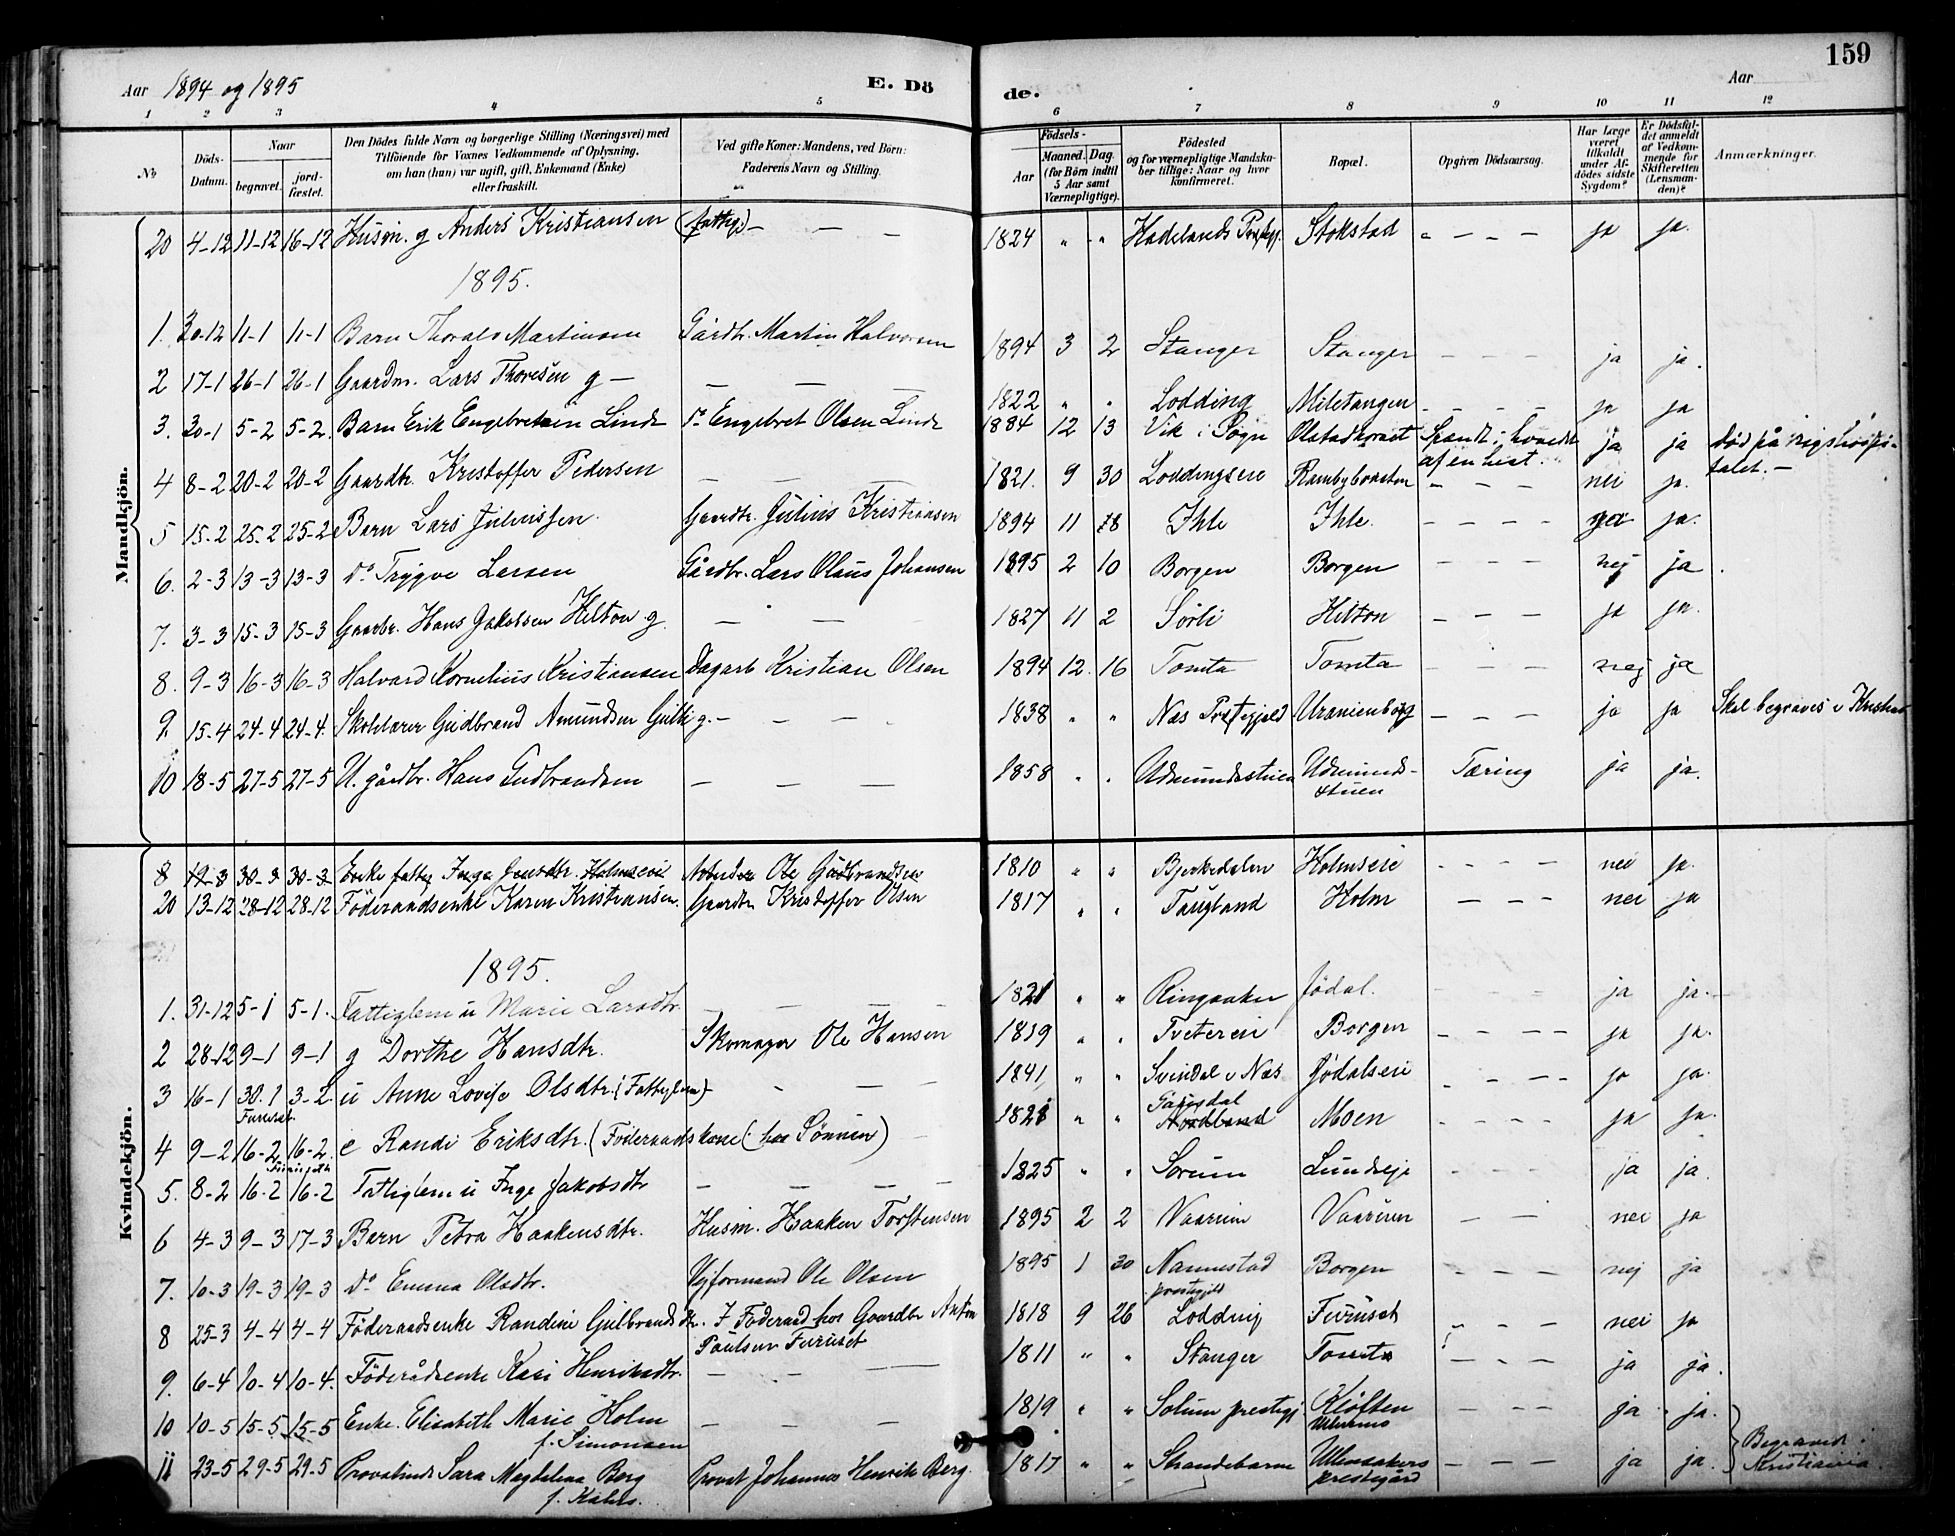 159
Aar 1894 og 1895 E. Dö de. Aar
1 2 3 4 5 6 7 8 9 10 11 12
No Döds-Datum. Naar begravet. jord-fæstet. Den Dödes fulde Navn og borgerlige Stilling (Næringsvei) med Tilföiende for Voxnes Vedkommende af Oplysning, om han (hun) var ugift, gift, Enkemand (Enke) eller fraskilt. Ved gifte Koner: Mandens, ved Börn: Faderens Navn og Stilling. Födsels- Aar Maaned. Dag. (for Börn indtil 5 Aar samt Værnepligtige). Födested og for værnepligtige Mandskaber tillige: Naar og hvor konfirmeret. Bopæl. Opgiven Dödsaarsag. Har Læge været tilkaldt under Afdödes sidste Sygdom? Er Dödsfaldet anmeldt af Vedkommende for Skifteretten (Lensmanden)? Anmærkninger.
Mandkjön.
20 4-12 11-12 16-12 Husm. g Anders Kristiansen (fattig) — — — 1824 " " Hadelands Stokstad - — - - ja ja.
1895.
1. 30-12 11-1 11-1 Barn Thorald Martinsen Gårdbr. Martin Halvorsen 1894 3 2 Stanger Stanger - - - ja ja.
2 17-1 26-1 26-1 Gaardm. Lars Thoresen g — — — — 1822 " " Lodding Miletangen - - - - ja ja
3. 30-1 5-2 5-2. Barn Erik Engebretsen Linde do Engebret Olsen Linde 1884 12 13 Vik i Sogn Olstadkornet Spændt i hovedet af en hest. ja ja Död på rigshospitalet. —
4 8-2 20-2 20-2 Gaardbr. Kristoffer Pedersen — — — 1821. 9 30 Loddingseie Rambybraaten - - - - nei ja.
5 15-2 25-2 25-2 Barn Lars Juliussen. Gaardbr. Julius Kristiansen 1894 11 Ihle Ihle. - - - - ja.
6. 2-3 13-3 13-3 Do Trygve Larsen Gårdbr. Lars Olaus Johansen 1895 2 10 Borgen Borgen - - - nej ja.
7. 3-3 15-3 15-3 Gaardbr. Hans Jakobsen Hilton g. — — — 1827 11 2 Sörli Hilton - - - - ja ja.
8. 9-3 16-3 16-3 Halvard Kornelius Kristiansen Dagarb Kristian Olsen 1894 12. 16 Tomta Tomta - - - nej ja
9. 15-4 24-4 24-4. Skolelærer Gudbrand Amundsen g. — — — 1838 " " Næs Prestegjeld Uranienborg - - - ja ja Skal begraves i
10 18-5 27-5 27-5 U. gårdbr. Hans Gudbrandsen — — — 1858 " " Udmundsstuen Udmunds-stuen Tæring ja ja.
Kvindekjön.
8 19-3 30-3 30-3 Enke fattig Inge Holmseie Ole Gudbrandsen 1810 " " Bjerkedalen Holmseie - - - - nei ja.
20 13-12 28-12 28-12 Föderaadsenke Karen Kristiansen. Gaardbr Kristoffer Olsen 1817 " " Taugland Holm - - - nei ja
1895.
1. 31-12 5-1 5-1. Fattiglem u Marie Larsdtr. — — — 1821 " " Ringsaker Jödal. - - - ja ja.
2 28-12 9-1 9-1 g Dorthe Hansdtr. Skomager Ole Hansen 1819 " " Tvetereie Borgen - - - - ja ja.
3 16-1 30.1 3-2. u Anne Lovise Olsdtr. (Fattiglem) - - — — 1841 " " Svindal i Næs Jödalseie - - - - ja ja.
Furuset
4 9-2 16-2 16-2. e Randi Eriksdtr. (Föderaadskone (hos Sönnen) 1821 " " Moen - - - ja ja.
5. 8-2 16-2 16-2 Fattiglem u Inge Jakobsdtr — — — — 1825 " " Sörum Lundseje - - - ja ja.
6 4-3 9-3 17-3 Barn Petra Haakensdtr. Husm. Haaken Torstensen 1895 2 2 Vaarum Vaarum — — nei ja
7. 10-3 19-3 19-3 Do Emma Olsdtr. Vejformand Ole Olsen 1895 1 30 Nannestad prestegjeld Borgen - - - nej ja
8 25-3 4-4 4-4 Föderaadsenke Randine Gulbrandsdtr. I Föderaad hos Gaardbr Anton Paulsen Furuset 1818 9 26 Lodding Furuset - - - nei ja
9. 6-4 10-4 10-4. Föderådsenke Kari Henriksdtr. — — — 1811 " " Stanger Tomta - - - ja ja.
10 10-5 15-5 15-5 Enke. Elisabeth Marie Holm f. Simonsen — — — 1819 " " Solum prestegj Klöften Ullensaker - - - ja ja.
11 23-5 29-5 29-5 Provstinde Sara Magdalena Berg Provst Johannes Henrik Berg. 1817 " " Strandebarm Ullensakers prestegård - - - ja ja. Begravede i Kristiania.